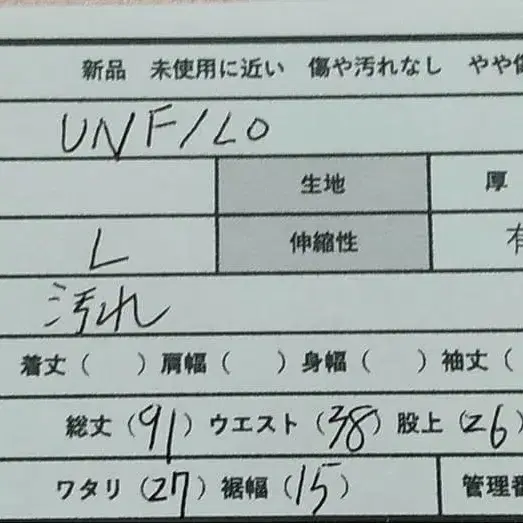 新品 未使用に近い 傷や汚れなし やや傷
UNF/LO
生地 厚
L 伸縮性 有
汚れ
着丈( )肩幅( )身幅( )袖丈(
総丈(91)ウエスト(38)股上(26)
ワタリ(27)裾幅(15) 管理番